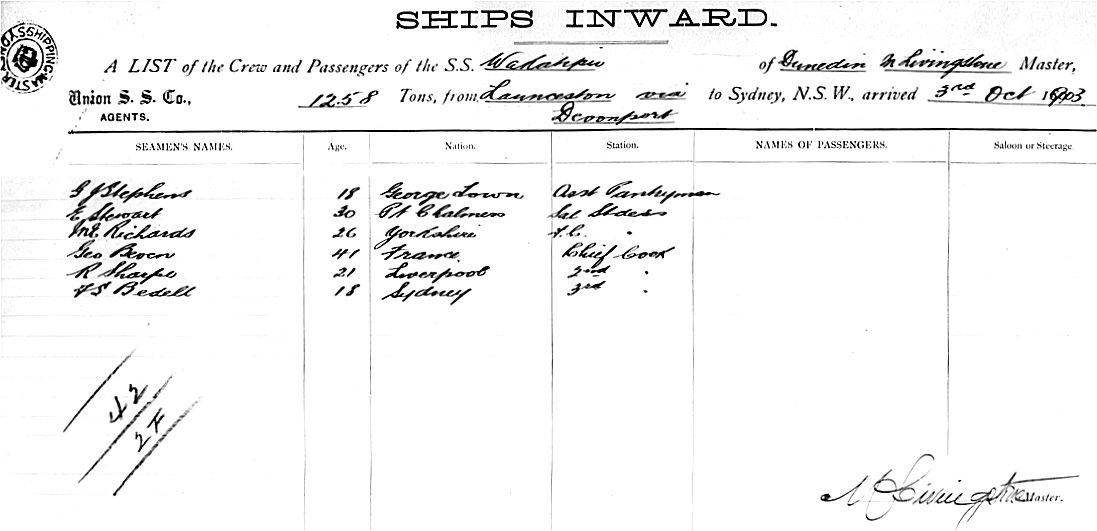 SHIPS INWARD.
SYDNEY SHIPPING MASTER
A LIST of the Crew and Passengers of the S.S. Wakatipu of Dunedin M Livingstone Master,
Union S. S. Co., 1258 Tons, from Launceston via to Sydney, N.S.W., arrived 3rd Oct 1903
AGENTS. Devonport
SEAMEN'S NAMES. Age. Nation. Station. NAMES OF PASSENGERS. Saloon or Steerage
G J Stephens 18 George Town Asst Pantryman
E Stewart 30 Pt Chalmers Sal Stdess
Richards 26 Yorkshire F.C. "
Geo Beven 41 France Chief Cook
R Sharpe 21 Liverpool 2nd "
Bedell 18 Sydney 3rd "
42
2F
M Livingstone Master.